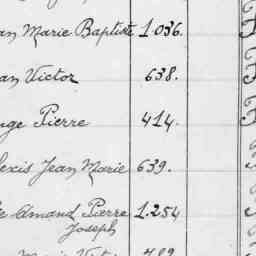 an Marie Baptiste 1.036.
an Victor 638.
nge Pierre 414.
lexis Jean Marie 639.
e Amand Pierre 1.254
Joseph
Marie Victor 789